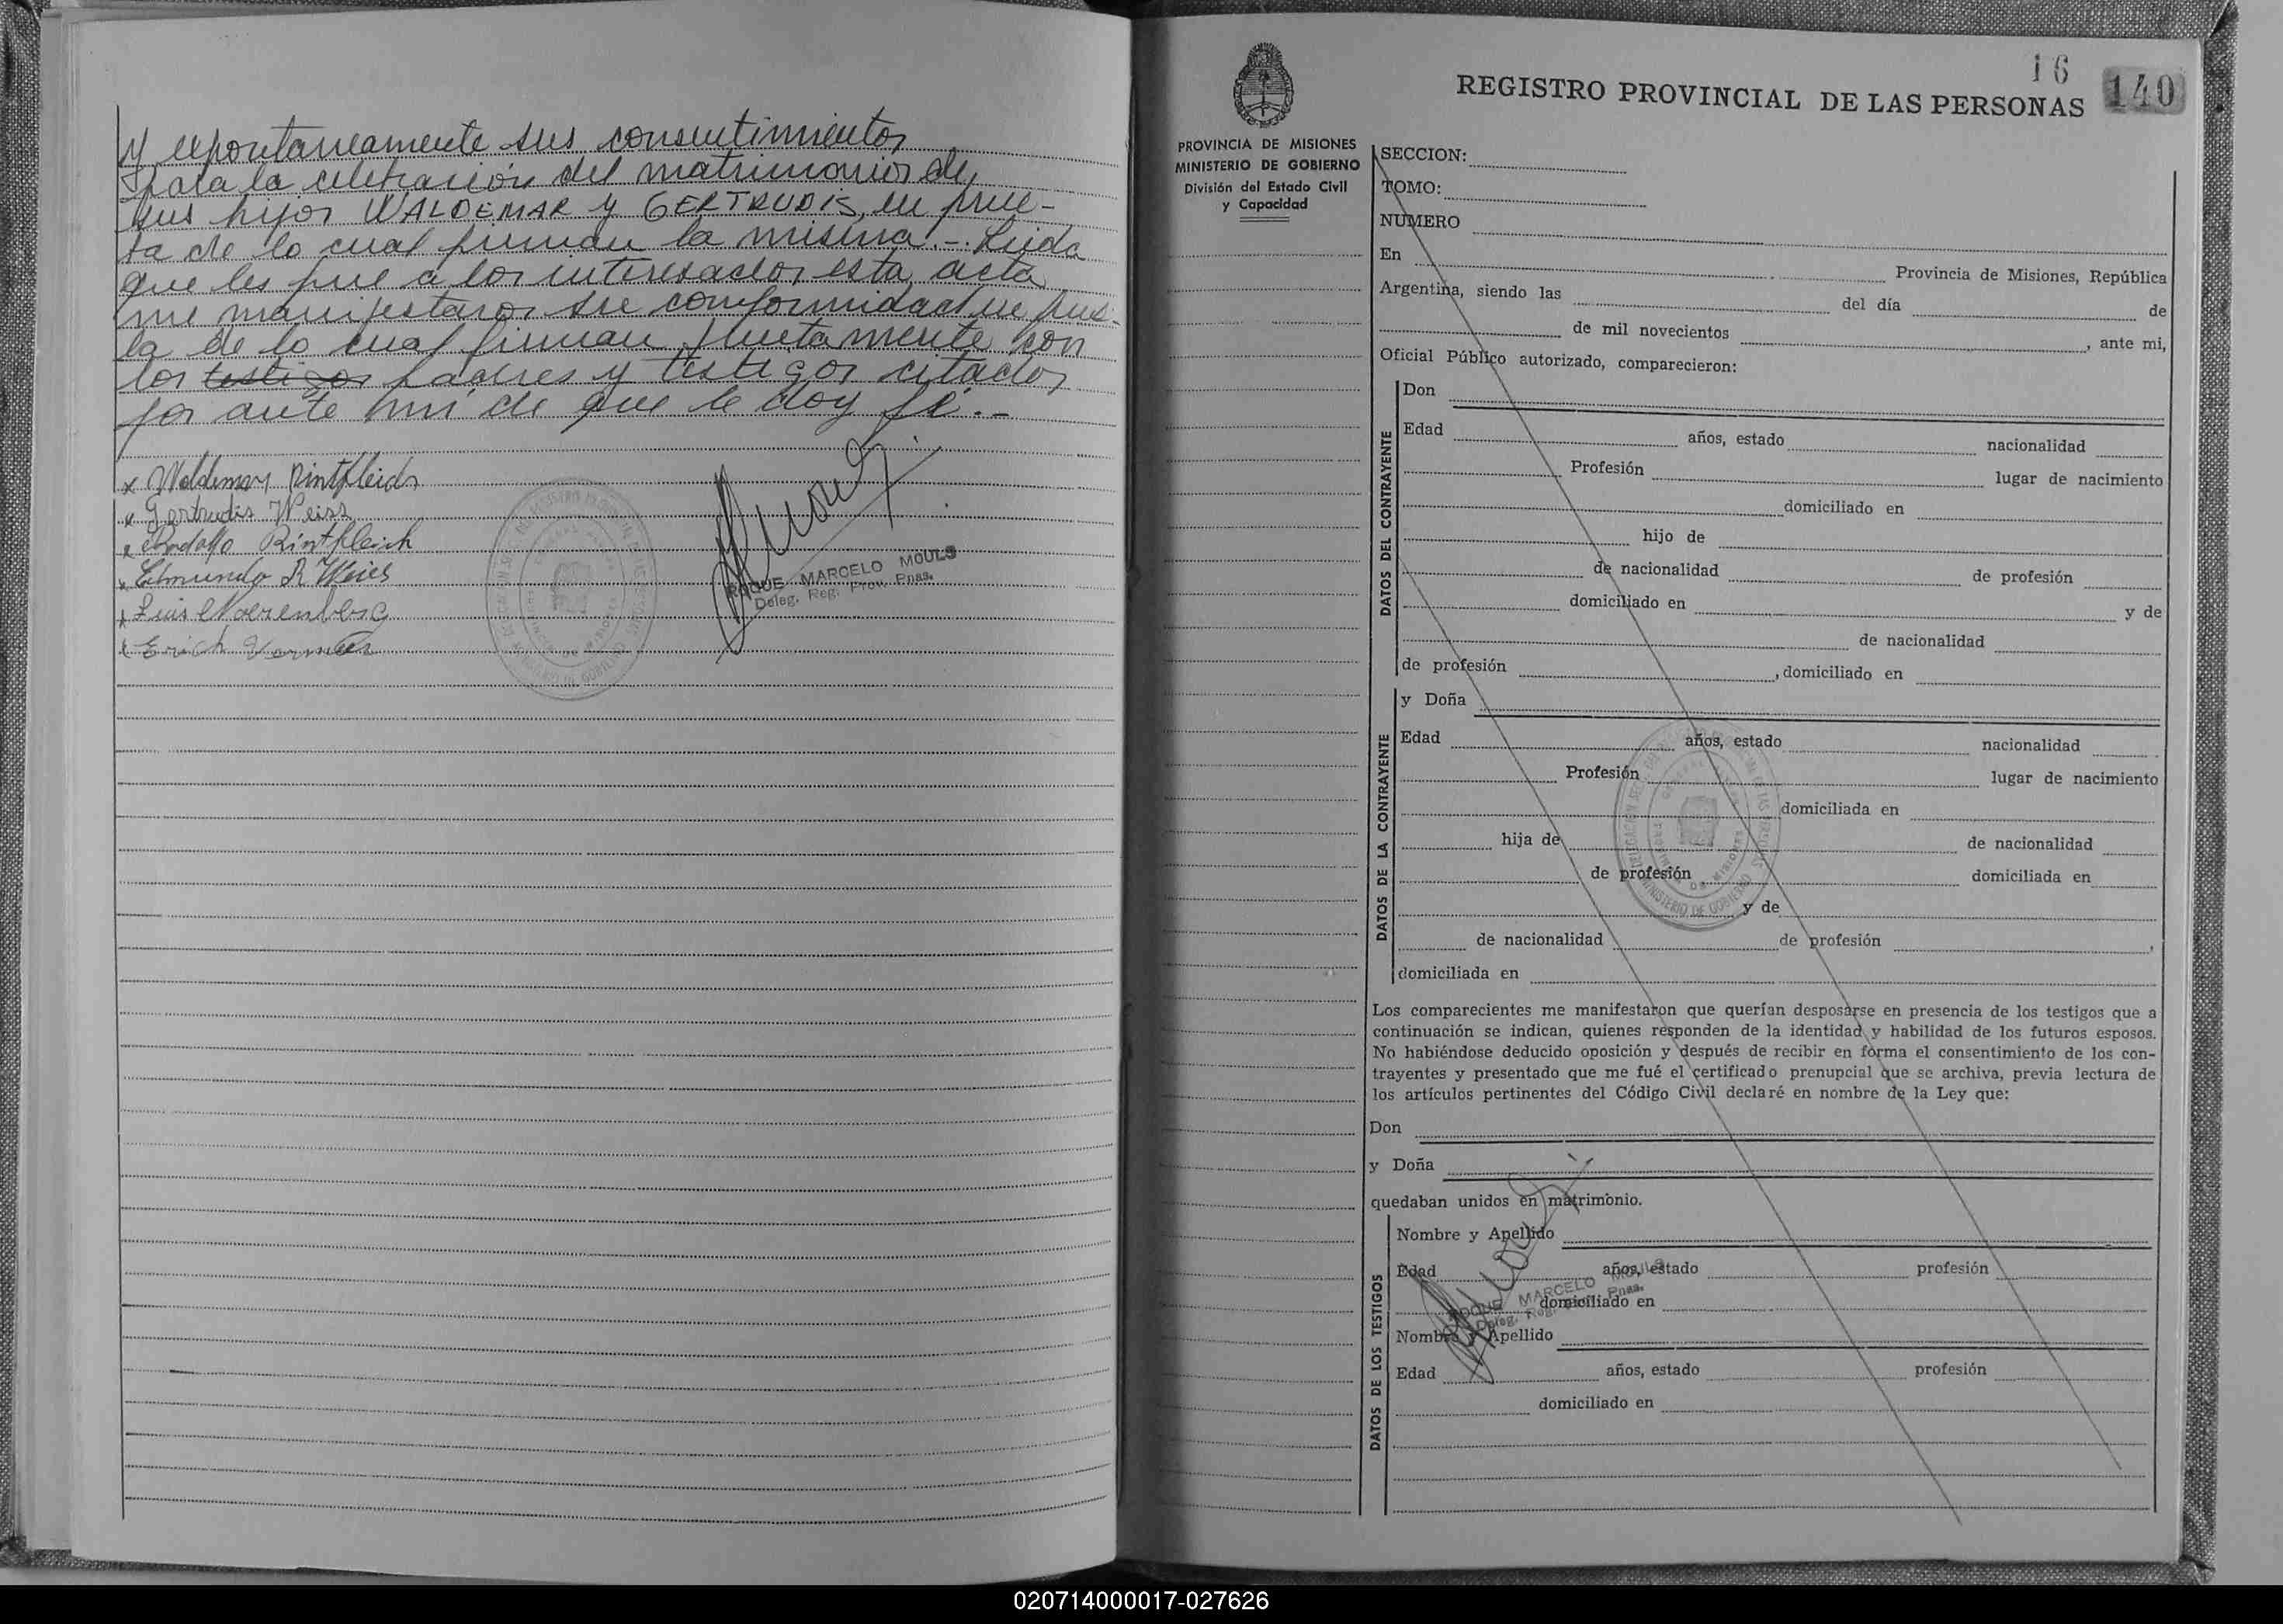 y expontaneamente sus consentimientos
para la celebración del matrimonios de
sus hijos WALDEMAR y GERTRUDIS, en prue-
ba de lo cual firman la misma.- Leida
que les fue a los interesados esta acta
me manifestaron su conformidad en prue-
ba de lo cual firman juntamente con
los testigos padres y testigos citados
por ante mi de que le doy fé.-
x Waldemar Rintfleich
x Gertrudis Weiss
x Rodolfo Rintfleich
x Edmundo R Weies
x Luis Noerenberg
x Erich
ROQUE MARCELO MOULS
Deleg. Reg. Prov. Pnas.
16
140
REGISTRO PROVINCIAL DE LAS PERSONAS
PROVINCIA DE MISIONES
MINISTERIO DE GOBIERNO
División del Estado Civil
y Capacidad
SECCION:
TOMO:
NUMERO
En Provincia de Misiones, República
Argentina, siendo las del día de
de mil novecientos , ante mi,
Oficial Público autorizado, comparecieron:
DATOS DEL CONTRAYENTE
Don
Edad años, estado nacionalidad
Profesión lugar de nacimiento
domiciliado en
hijo de
de nacionalidad de profesión
domiciliado en y de
de nacionalidad
de profesión , domiciliado en
DATOS DE LA CONTRAYENTE
y Doña
Edad años, estado nacionalidad
Profesión lugar de nacimiento
domiciliada en
hija de de nacionalidad
de profesión domiciliada en
y de
de nacionalidad de profesión ,
domiciliada en
Los comparecientes me manifestaron que querían desposarse en presencia de los testigos que a
continuación se indican, quienes responden de la identidad y habilidad de los futuros esposos.
No habiéndose deducido oposición y después de recibir en forma el consentimiento de los con-
trayentes y presentado que me fué el certificado prenupcial que se archiva, previa lectura de
los artículos pertinentes del Código Civil declaré en nombre de la Ley que:
Don
y Doña
quedaban unidos en matrimonio.
DATOS DE LOS TESTIGOS
Nombre y Apellido
Edad años, estado profesión
domiciliado en
ROQUE MARCELO MOULS
Deleg. Reg. Prov. Pnas.
Nombre y Apellido
Edad años, estado profesión
domiciliado en
020714000017-027626